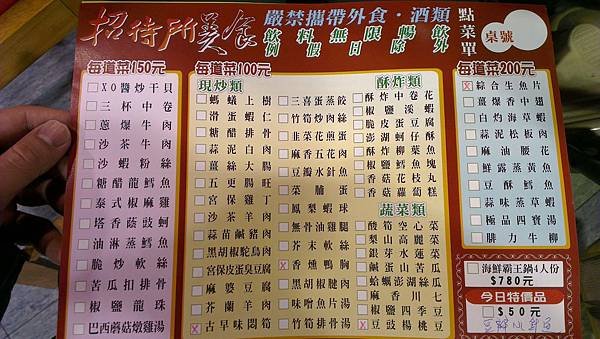 招待所美食
嚴禁攜帶外食・酒類
飲料無限暢飲
例假日除外
點菜單
桌號
每道菜150元
XO醬炒干貝
三杯中卷
蔥爆牛肉
沙茶牛肉
沙蝦粉絲
糖醋龍鱈魚
泰式椒麻雞
塔香蔭豉蚵
油淋蒸鱈魚
脆炒軟絲
苦瓜扣排骨
椒鹽龍珠
巴西蘑菇燉雞湯
每道菜100元
現炒類
螞蟻上樹
滑蛋蝦仁
糖醋排骨
蒜泥白肉
薑絲大腸
五更腸旺
宮保雞丁
沙茶羊肉
蒜苗鹹豬肉
黑胡椒鴕鳥肉
宮保皮蛋臭豆腐
麻婆豆腐
芥蘭羊肉
古早味悶筍
三喜蛋蒸餃
竹筍炒肉絲
韭菜花煎蛋
麻香五花肉
豆瓣水針魚
菜脯蛋
鳳梨蝦球
無骨油雞腿
芥末軟絲
香燻鴨胸
黑胡椒腱肉
味噌魚片湯
竹筍排骨湯
酥炸類
酥炸中卷花
椒鹽溪蝦
脆皮蛋豆腐
澎湖蚵仔酥
酥炸柳葉魚
椒鹽鱈魚塊
香菇花枝丸
香菇蘿蔔糕
蔬菜類
酸筍空心菜
梨山高麗菜
銀芽水蓮菜
鹹蛋山苦瓜
蛤蠣澎湖絲瓜
麻香川七
椒鹽四季豆
豆豉楊桃豆
每道菜200元
綜合生魚片
薑爆香中翅
白灼海草蝦
蒜泥松板肉
麻油腰花
鮮露蒸黃魚
豆酥鱈魚
蒜味蒸草蝦
極品四寶湯
腓力牛柳
海鮮霸王鍋4人份
$780元
今日特價品
$50元